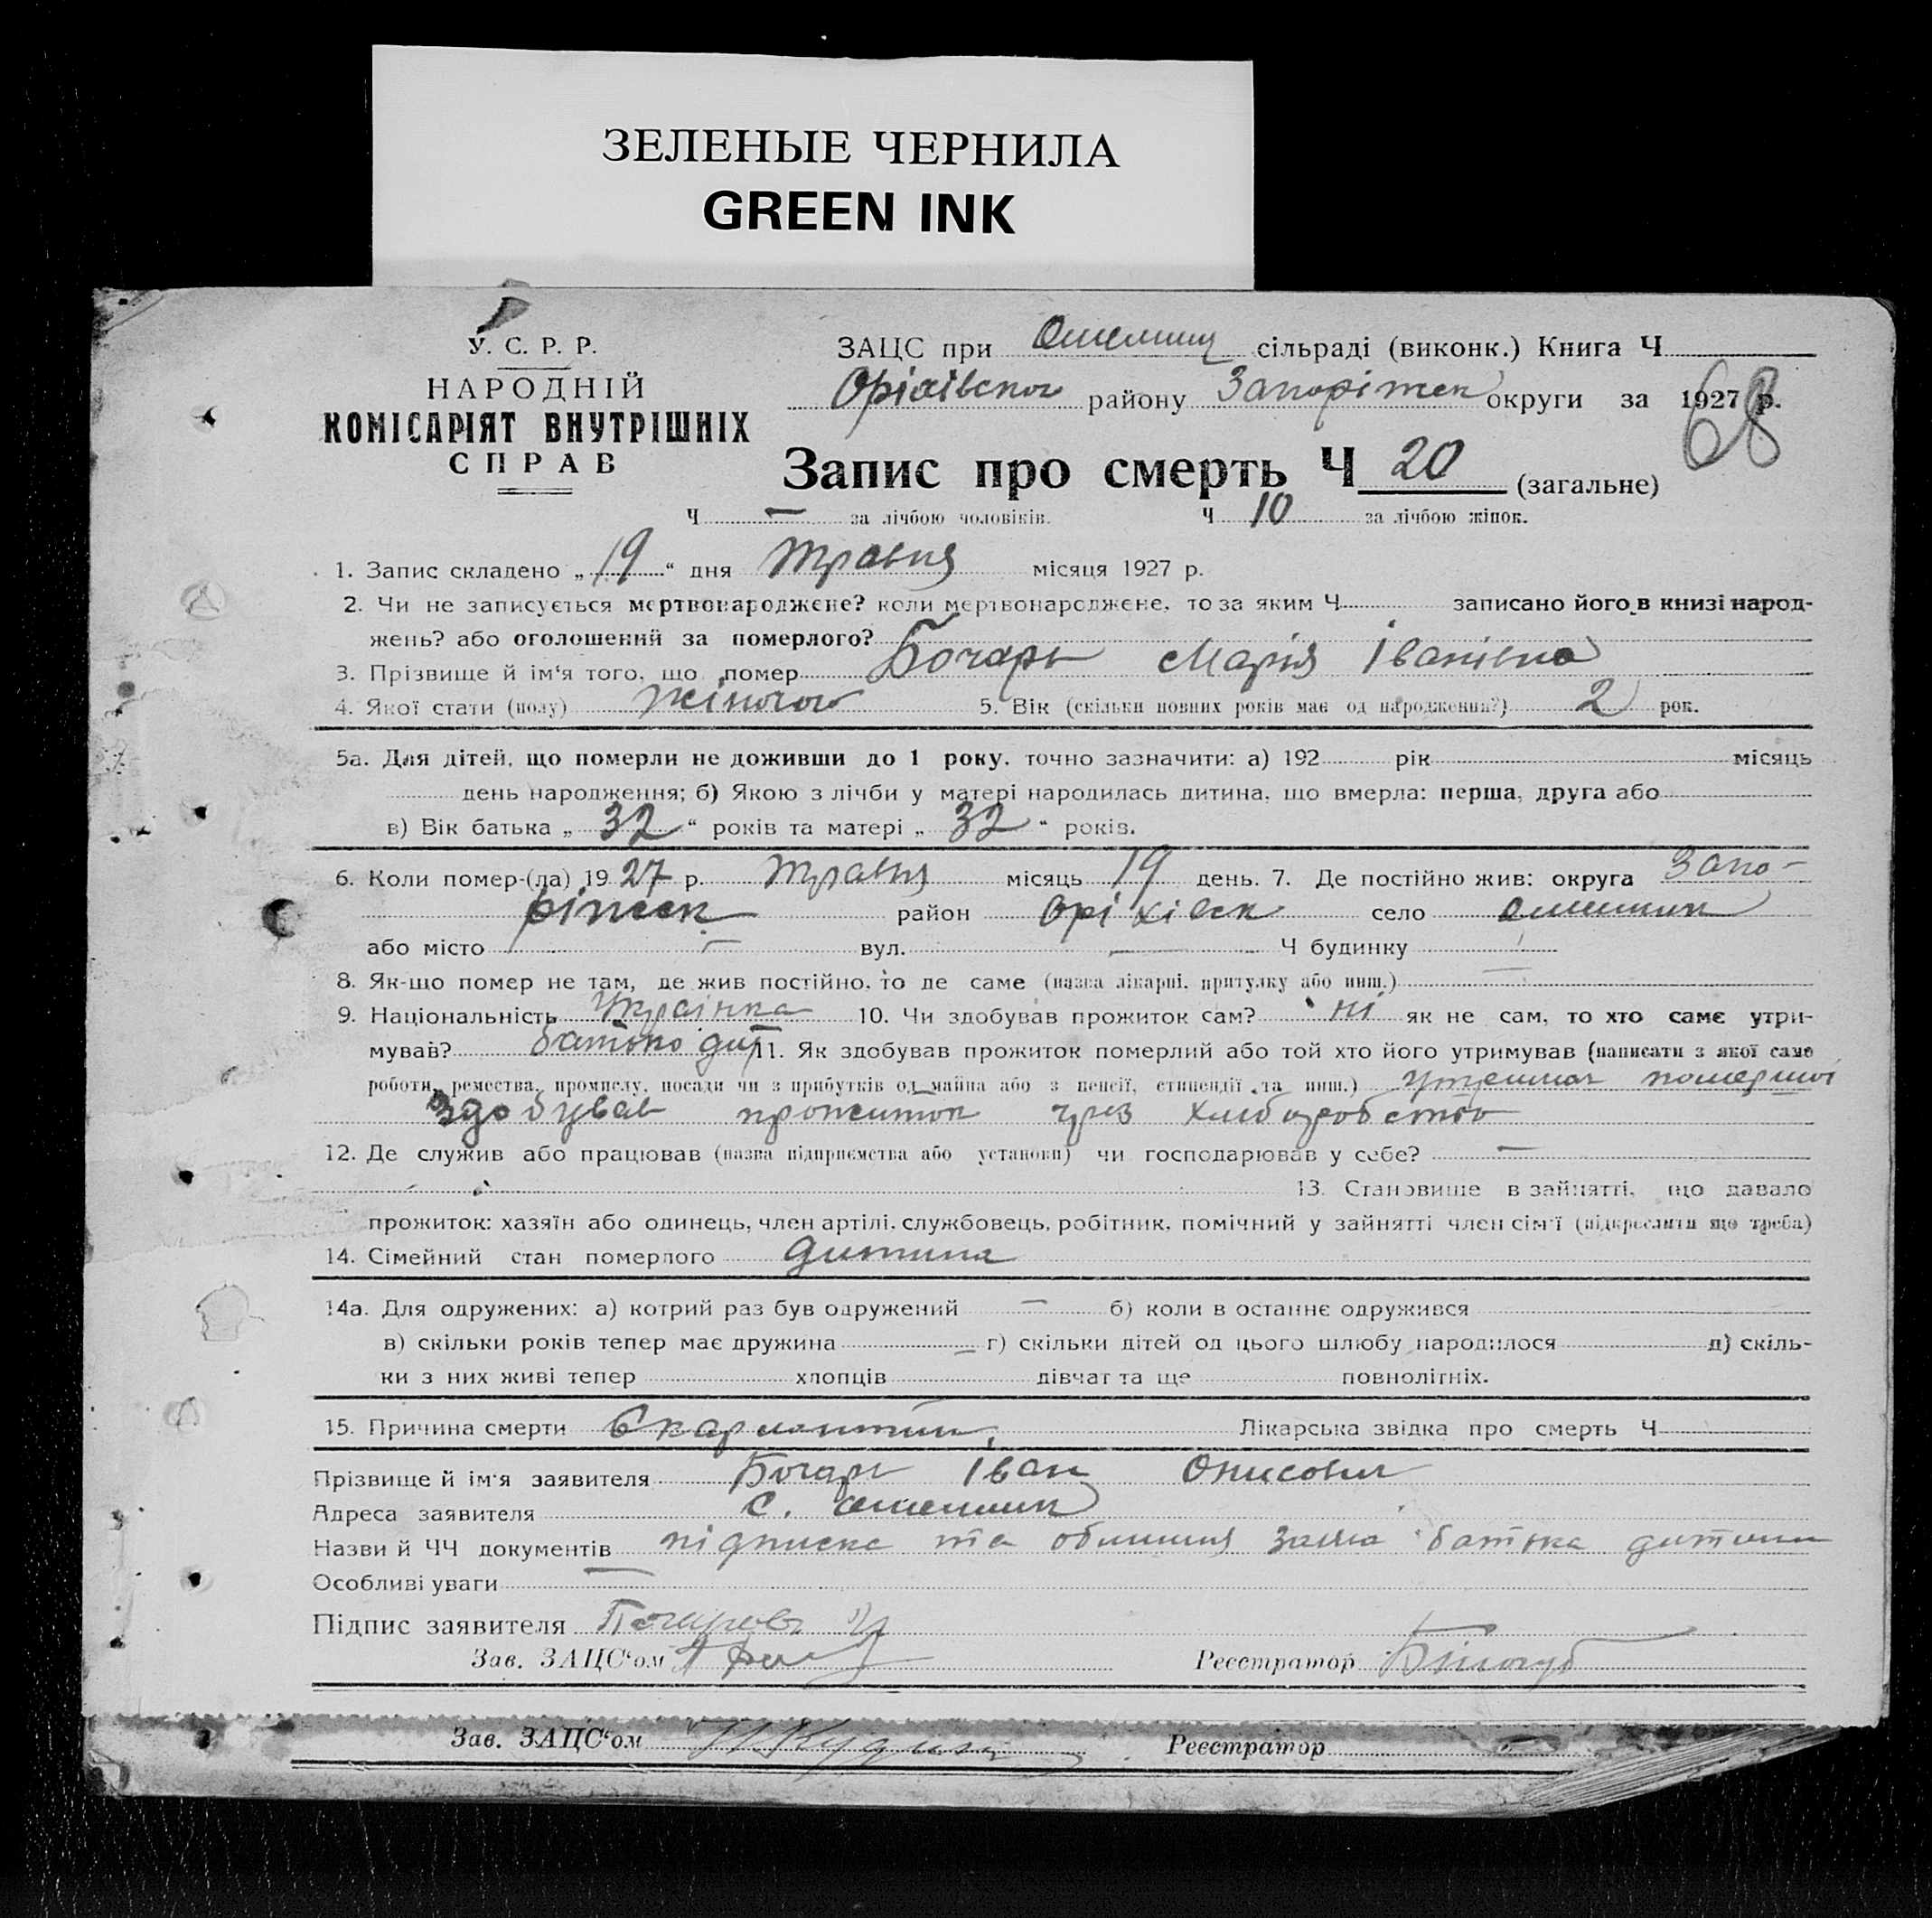 ЗЕЛЕНЫЕ ЧЕРНИЛА
GREEN INK
У. С. Р. Р.
НАРОДНІЙ
КОМІСАРІЯТ ВНУТРІШНІХ
СПРАВ
ЗАЦС при сільраді (виконк.) Книга Ч
Оріхівського району Запоріжск округи за 1927 р.
68
Запис про смерть Ч 20 (загальне)
Ч — за лічбою чоловіків. Ч 10 за лічбою жінок.
1. Запис складено „19“ дня Травня місяця 1927 р.
2. Чи не записується мертвонароджене? коли мертвонароджене, то за яким Ч записано його в книзі народ-
жень? або оголошений за померлого?
3. Прізвище й ім‘я того, що помер Бочарь Марія Іванівна
4. Якої стати (полу) жіночого 5. Вік (скільки повних років має од народження?) 2 рок.
5а. Для дітей, що померли не доживши до 1 року, точно зазначити: а) 192 рік місяць
день народження; б) Якою з лічби у матері народилась дитина, що вмерла: перша, друга або
в) Вік батька „32“ років та матері „32“ років.
6. Коли помер-(ла) 1927 р. Травня місяць 19 день. 7. Де постійно жив: округа Запо-
ріжск район Оріхівск село
або місто — вул. — Ч будинку
8. Як-що помер не там, де жив постійно, то де саме (назва лікарні, притулку або инш.) —
9. Національність Українка 10. Чи здобував прожиток сам? ні як не сам, то хто саме утри-
мував? батько 11. Як здобував прожиток померлий або той хто його утримував (написати з якої само
роботи, ремества, промислу, посади чи з прибутків од майна або з пенсії, стипендії та инш.)
здобував прожиток чрез хлиборобство
12. Де служив або працював (назва підприємства або установи) чи господарював у себе? —
13. Становище в зайнятті, що давало
прожиток: хазяїн або одинець, член артілі, службовець, робітник, помічний у зайнятті член сім‘ї (підкреслити що треба)
14. Сімейний стан померлого дитина
14а. Для одружених: а) котрий раз був одружений — б) коли в останнє одружився
в) скільки років тепер має дружина — г) скільки дітей од цього шлюбу народилося д) скіль-
ки з них живі тепер хлопців дівчат та ще повнолітніх.
15. Причина смерти Лікарська звідка про смерть Ч
Прізвище й ім‘я заявителя Бочарь Іван Онисович
Адреса заявителя с.
Назви й ЧЧ документів підписка та батька дитини
Особливі уваги —
Підпис заявителя
Зав. ЗАЦС‘ом Реєстратор
Зав. ЗАЦС‘ом Реєстратор